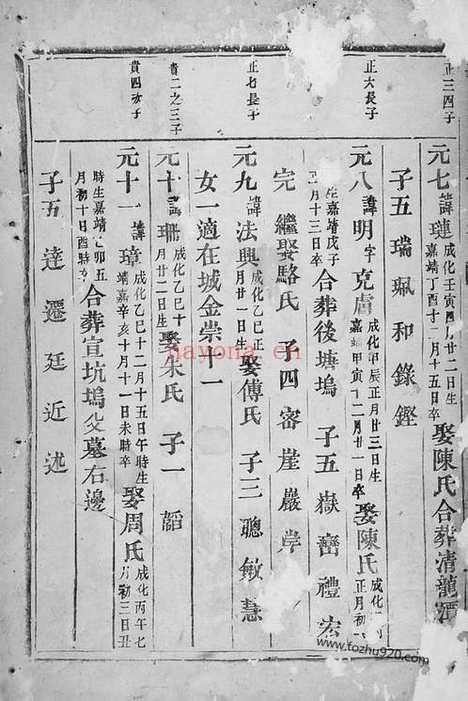 正三四子
正大長子
正七長子
貴二之三子
貴四次子
元七諱璉成化壬寅四月廿二日生嘉靖丁酉十二月十五日卒娶陳氏合葬清龍潭
子五瑞珮和錄鏗
元八諱明字克膚成化甲辰正月廿三日生嘉靖甲寅十二月廿一日卒娶陳氏成化正月初
生嘉靖戊子正月十三日卒合葬後塘塢子五嶽嵞禮宏
完繼娶駱氏子四密崖巖岸
元九諱法興成化乙巳正月廿一日生娶傅氏子三聰敏慧
女一適在城金崇十一
元十諱珊成化乙巳十月廿二日生娶朱氏子一韜
元十一諱璋成化乙巳十二月十五日午時生嘉靖辛亥十月十一日未時卒娶周氏成化丙午七月初三日丑
時生嘉靖乙卯五月初十日酉時卒合葬宣坑塢父墓右邊
子五達遷廷近述
nayona.cn
www.fozhu920.com